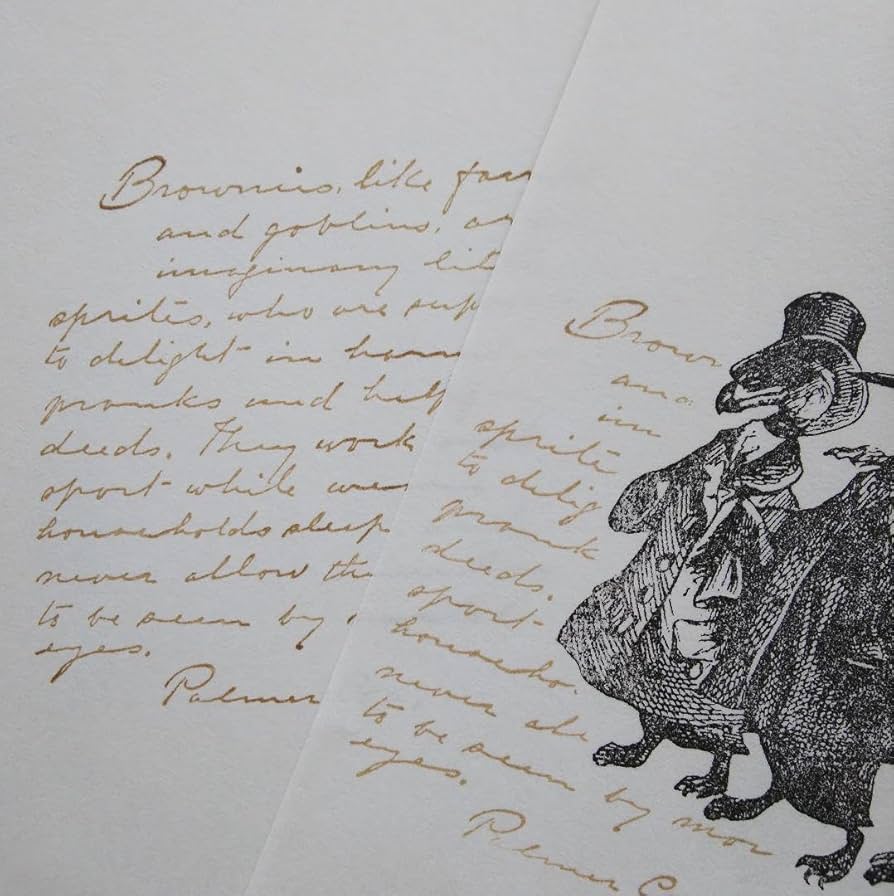 Brownies, like
and goblins,
imaginary
sprites, who are
to delight in
pranks and
deeds. They work
sport while
households sleep
never allow
to be seen by
eyes.
Palmer
Brow
and
sprite
to delig
prank
deeds.
sport
househo
never
to be seen by mor
eyes.
Palmer C